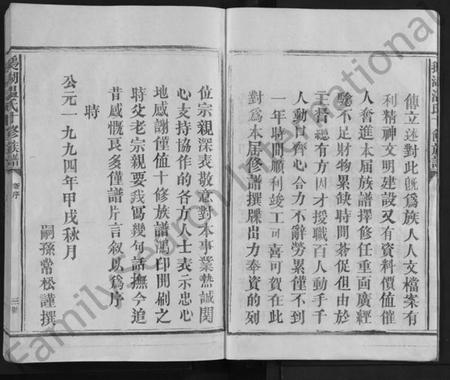 傳立述對此旣爲族人人文檔案有
利精神文明建設又有資料價值催
人奮進本屆族譜擇修任重面廣經
驗不足財物累餘時間荅促但由於
主普總有方因才授職百人動手千
人動口齊心合力不辭勞累僅不到
一年時間順利竣工可喜可賀在此
對爲本屆修譜探出力奉資的列
位宗親深表敬意對本事業熱誠関
心支持協作的各方人士表示忠心
地感謝僅值十修族譜鴻印開刷之
時父老宗親要我寫幾句話撫今追
昔感慨良多僅譜片言叙以爲序
時
公元一九九四年甲戌秋月
嗣孫常松謹撰
湖温氏十修族譜
卷序
三
Family Search International